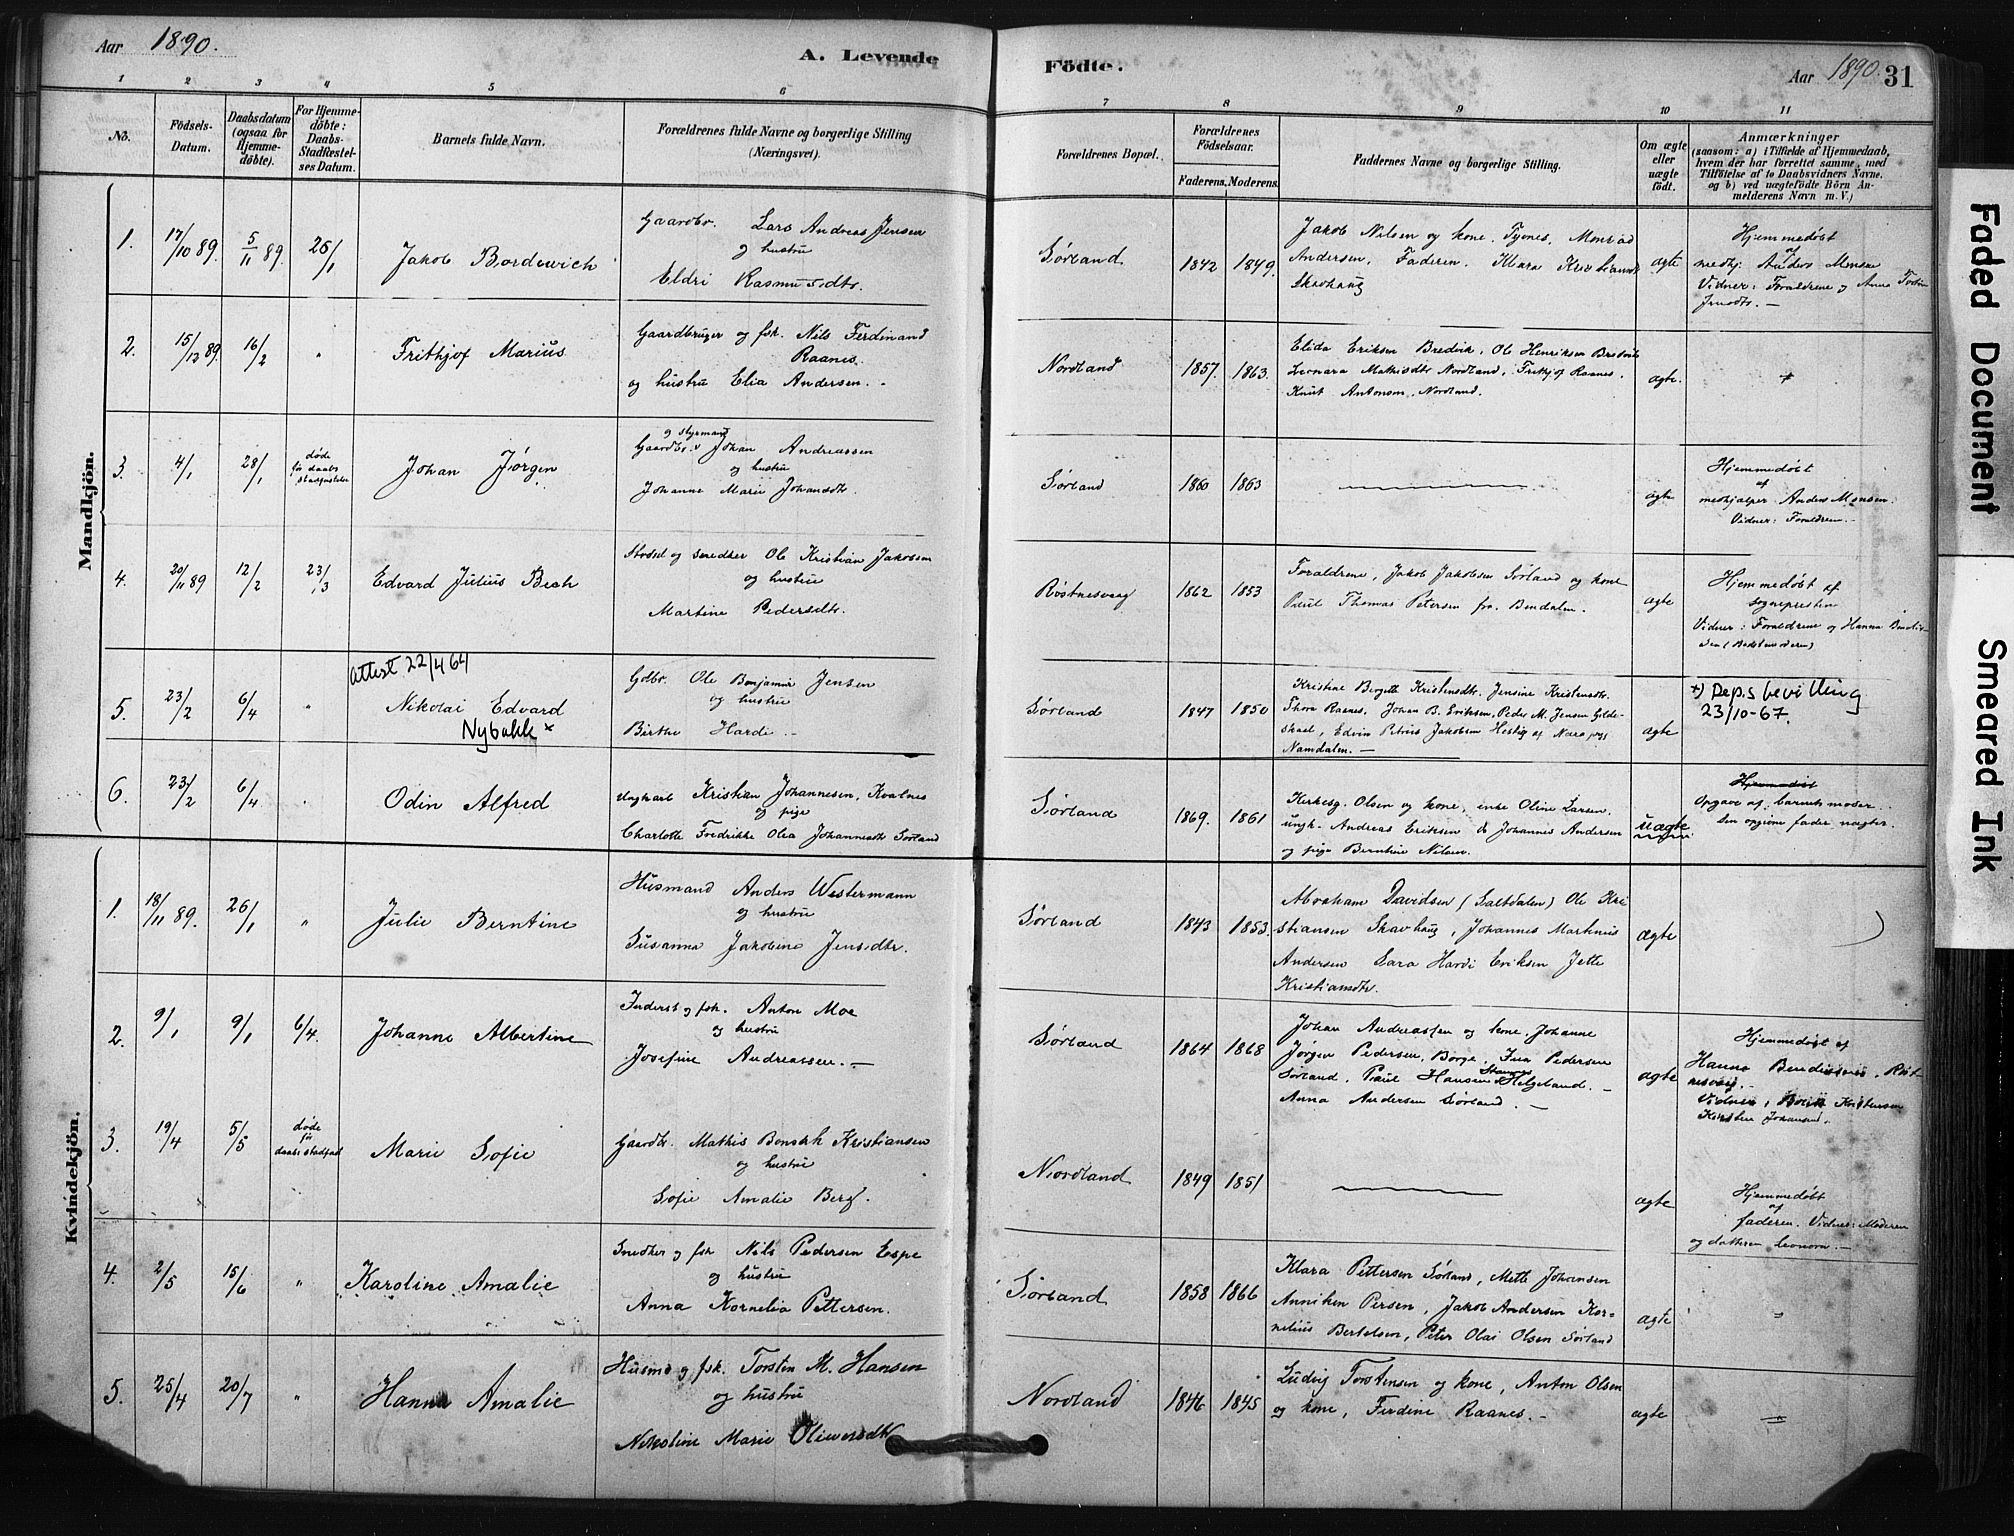 Aar 1890.
A. Levende
Födte.
Aar 1890. 31
1 2 3 4 5 6 7 8 9 10 11
No.
Födsels-
Datum.
Daabsdatum
(ogsaa for
Hjemme-
döbte).
For Hjemme-
döbte:
Daabs-
Stadfæstel-
ses Datum.
Barnets fulde Navn.
Forældrenes fulde Navne og borgerlige Stilling
(Næringsvei).
Forældrenes Bopæl.
Forældrenes
Födselsaar.
Faderens. Moderens.
Faddernes Navne og borgerlige Stilling.
Om ægte
eller
uægte
födt.
Anmærkninger
(saasom: a) i Tilfælde af Hjemmedaab,
hvem der har forrettet samme, med
Tilföielse af to Daabsvidners Navne,
og b) ved uægtefödte Börn An-
melderens Navn m. V.)
Mandkjön.
1. 17/10 89. 5/11 89. 26/1 Jakob Bordewich
Gaardbr. Lars Andreas Jensen
og hustru
Eldri Rasmusdtr.
Sørland 1842 1849.
Jakob Nilsen og kone, Monrad
Andersen, Faderen.
Skavhaug
ægte
Hjemmedøbt
af
medhj. Anders Monsen
Vidner: Forældrene og Anna
2. 15/12 89. 16/2 " Frithjof Marius
Gaardbruger og fsk. Nils Ferdinand
Raanes
og hustru Elia Andersen.
Nordland 1857. 1863.
Elida Eriksen Bredvik, Ole Henriksen Bredvik
Leonara Mathisdtr Nordland, Frithjof Raanes,
Knut Antonsen, Nordland.
ægte.
3. 4/1 28/1 døde
før daabs
stadfæstelse
Johan Jørgen
og styrmand
Gaardbr. Johan Andreassen
og hustru
Johanne Marie Johansdtr.
Sørland 1860 1863
ægte
Hjemmedøbt
af
medhjælper Anders Monsen.
Vidner: Forældrene.
4. 20/11 89 12/2 23/3 Edvard Julius Bech
og snedker Ole Kristian Jakobsen
og hustru
Martine Pedersdtr.
Røstnesvaag 1862 1853
Forældrene, Jakob Jakobsen Sørland og kone
Paul Thomas Petersen fra Bindalen.
ægte
Hjemmedøbt af
sognepresten
Vidner: Forældrene og Hanna
5. 23/2 6/4 "
attest 22/4 64
Nikolai Edvard
Nybakk x
Gdbr. Ole Benjamin Jensen
og hustru
Birthe Hardi
Sørland 1847 1850
Kristine Bergette Kristensdtr. Jensine Kristensdtr.
Thora Raanes, Johan B. Eriksen, Peder M. Jensen Gilde-
skaal, Edvin Petrus Jakobsen
Namdalen.
ægte
x) Dep.s bevilling
23/10-67.
6. 23/2 6/4 " Odin Alfred
Ungkarl Kristian Johannesen, Kvalnes
og pige
Charlotte Fredrikke Olea Johannesdtr Sørland
Sørland 1869. 1861
Kirkesg. Olsen og kone, enke Oline Larsen,
ungk. Andreas Eriksen & Johannes Andersen
og pige Berntine Nilsen.
uægte
Hjemmedøbt
Opgave af barnets moder.
Den opgivne fader nægter.
Kvindekjön.
1. 18/11 89. 26/1 " Julie Berntine
Husmand Anders Westermann
og hustru
Susanna Jakobine Jensdtr.
Sørland 1843 1853.
Abraham Davidsen (Saltdalen) Ole Kri-
stiansen Skavhaug, Johannes Martinus
Andersen Sara Hardi Eriksen Jette
Kristiansdtr.
ægte
2. 9/1 9/1 6/4. Johanne Albertine
Inderst og fsk. Anton Moe
og hustru
Josefine Andreassen.
Sørland 1864 1868
Johan Andreassen og kone, Johanne
Jørgen Pedersen, Borge, Ina Pedersen
Sørland, Paul Hansen Helgeland.
Anna Andersen Sørland.
ægte
Hjemmedøbt af
Hanna Røst-
nesvaag.
Vidner: Kristensen
3. 19/4 5/5 døde
før
daabs stadfæst
Marie Sofie
Gaardbr. Mathis Kristiansen
og hustru
Sofie Amalie Berg.
Nordland 1849 1851
ægte
Hjemmedøbt
af
faderen. Vidner: Moderen
og datteren Leonora.
4. 2/5 15/6 " Karoline Amalie
Snedker og fsk Nils Pedersen Espe
og hustru
Anna Kornelia Pettersen.
Sørland 1858 1866
Klara Pettersen Sørland, Mette Johansen
Anniken Persen, Jakob Andersen Kor-
nelius Bertelsen, Peter Olai Olsen Sørland
ægte "
5. 25/4 20/7 " Hanna Amalie
Husmd og fsk. Torsten M. Hansen
og hustru
Nikoline Marie Oliversdtr
Nordland 1846 1845
Ludvig Torstensen og kone, Anton Olsen
og kone, Ferdine Raanes.
ægte "
Faded Document
Smeared Ink